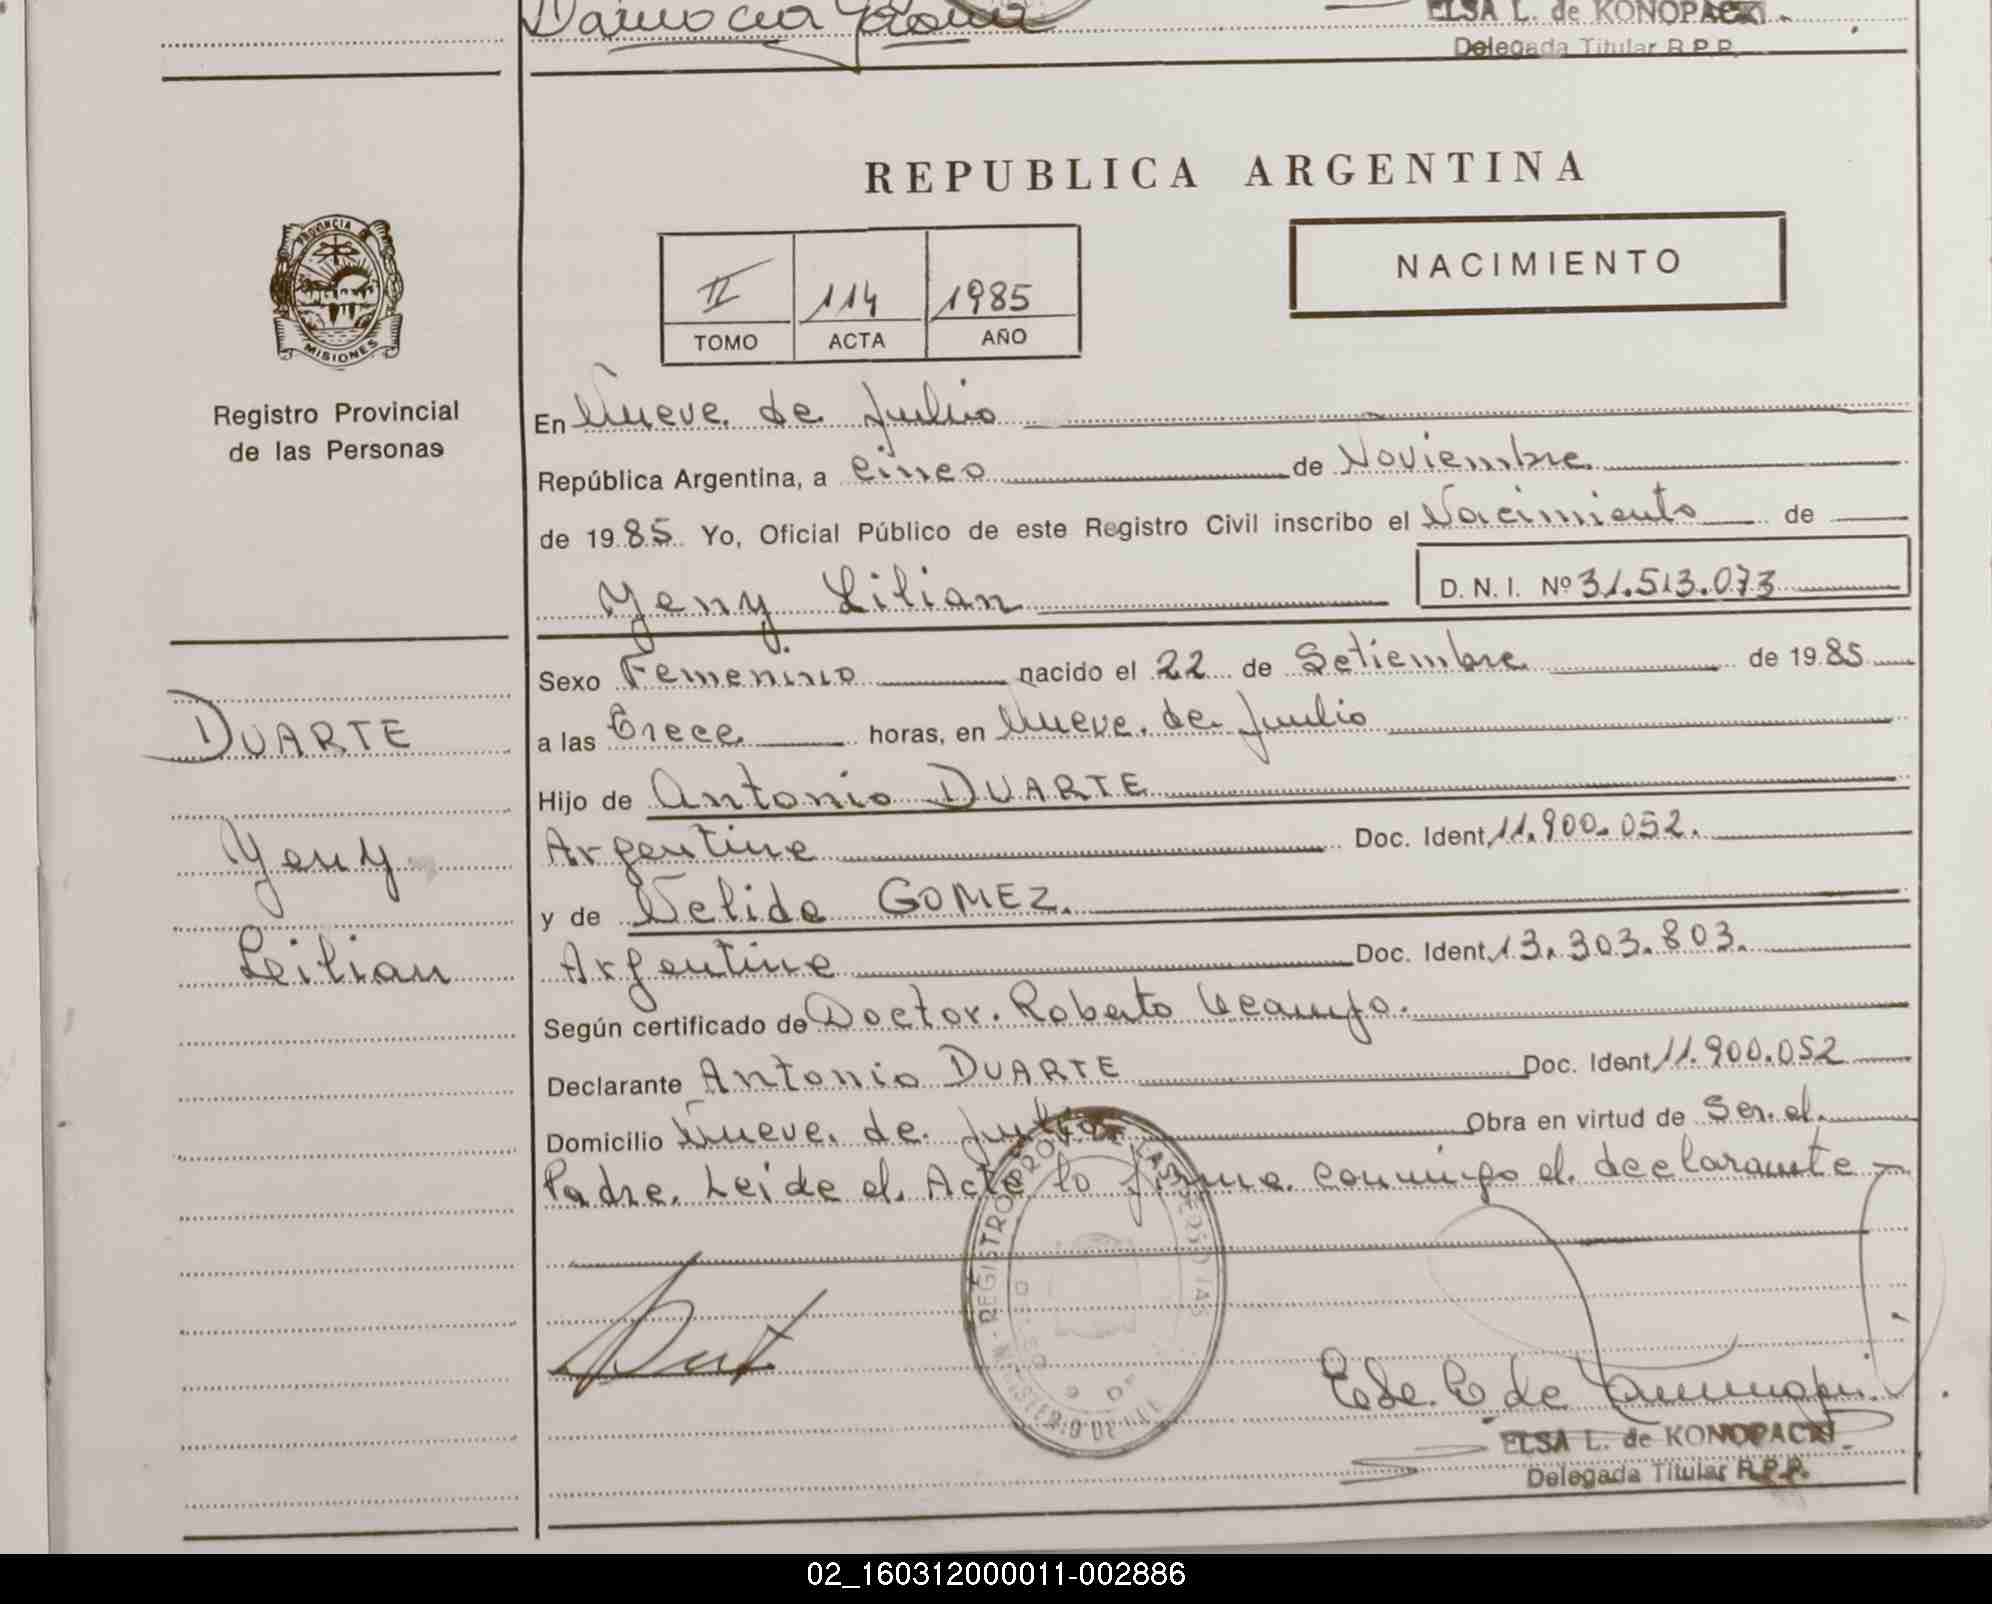 ELSA L. de KONOPACKI.
Delegada Titular R.P.P.
REPUBLICA ARGENTINA
PROVINCIA DE
MISIONES
II 114 1985
TOMO ACTA AÑO
NACIMIENTO
Registro Provincial
de las Personas
En Nueve de Julio
República Argentina, a Cinco de Noviembre
de 1985 Yo, Oficial Público de este Registro Civil inscribo el Nacimiento de
Yeny Lilian D. N. I. Nº 31.513.073
Sexo Femenino nacido el 22 de Setiembre de 1985
a las Trece horas, en Nueve de Julio
Hijo de Antonio DUARTE
Argentino Doc. Ident. 11.900.052.
y de Nelida GOMEZ.
Argentina Doc. Ident. 13.303.803.
Según certificado de Doctor. Roberto Ocampo.
Declarante Antonio DUARTE Doc. Ident. 11.900.052
Domicilio Nueve de Julio Obra en virtud de Ser el
Padre. Leida el Acta lo firma conmigo el declarante
DUARTE
Yeny
Leilian
ELSA L. de KONOPACKI.
Delegada Titular R.P.P.
02_160312000011-002886